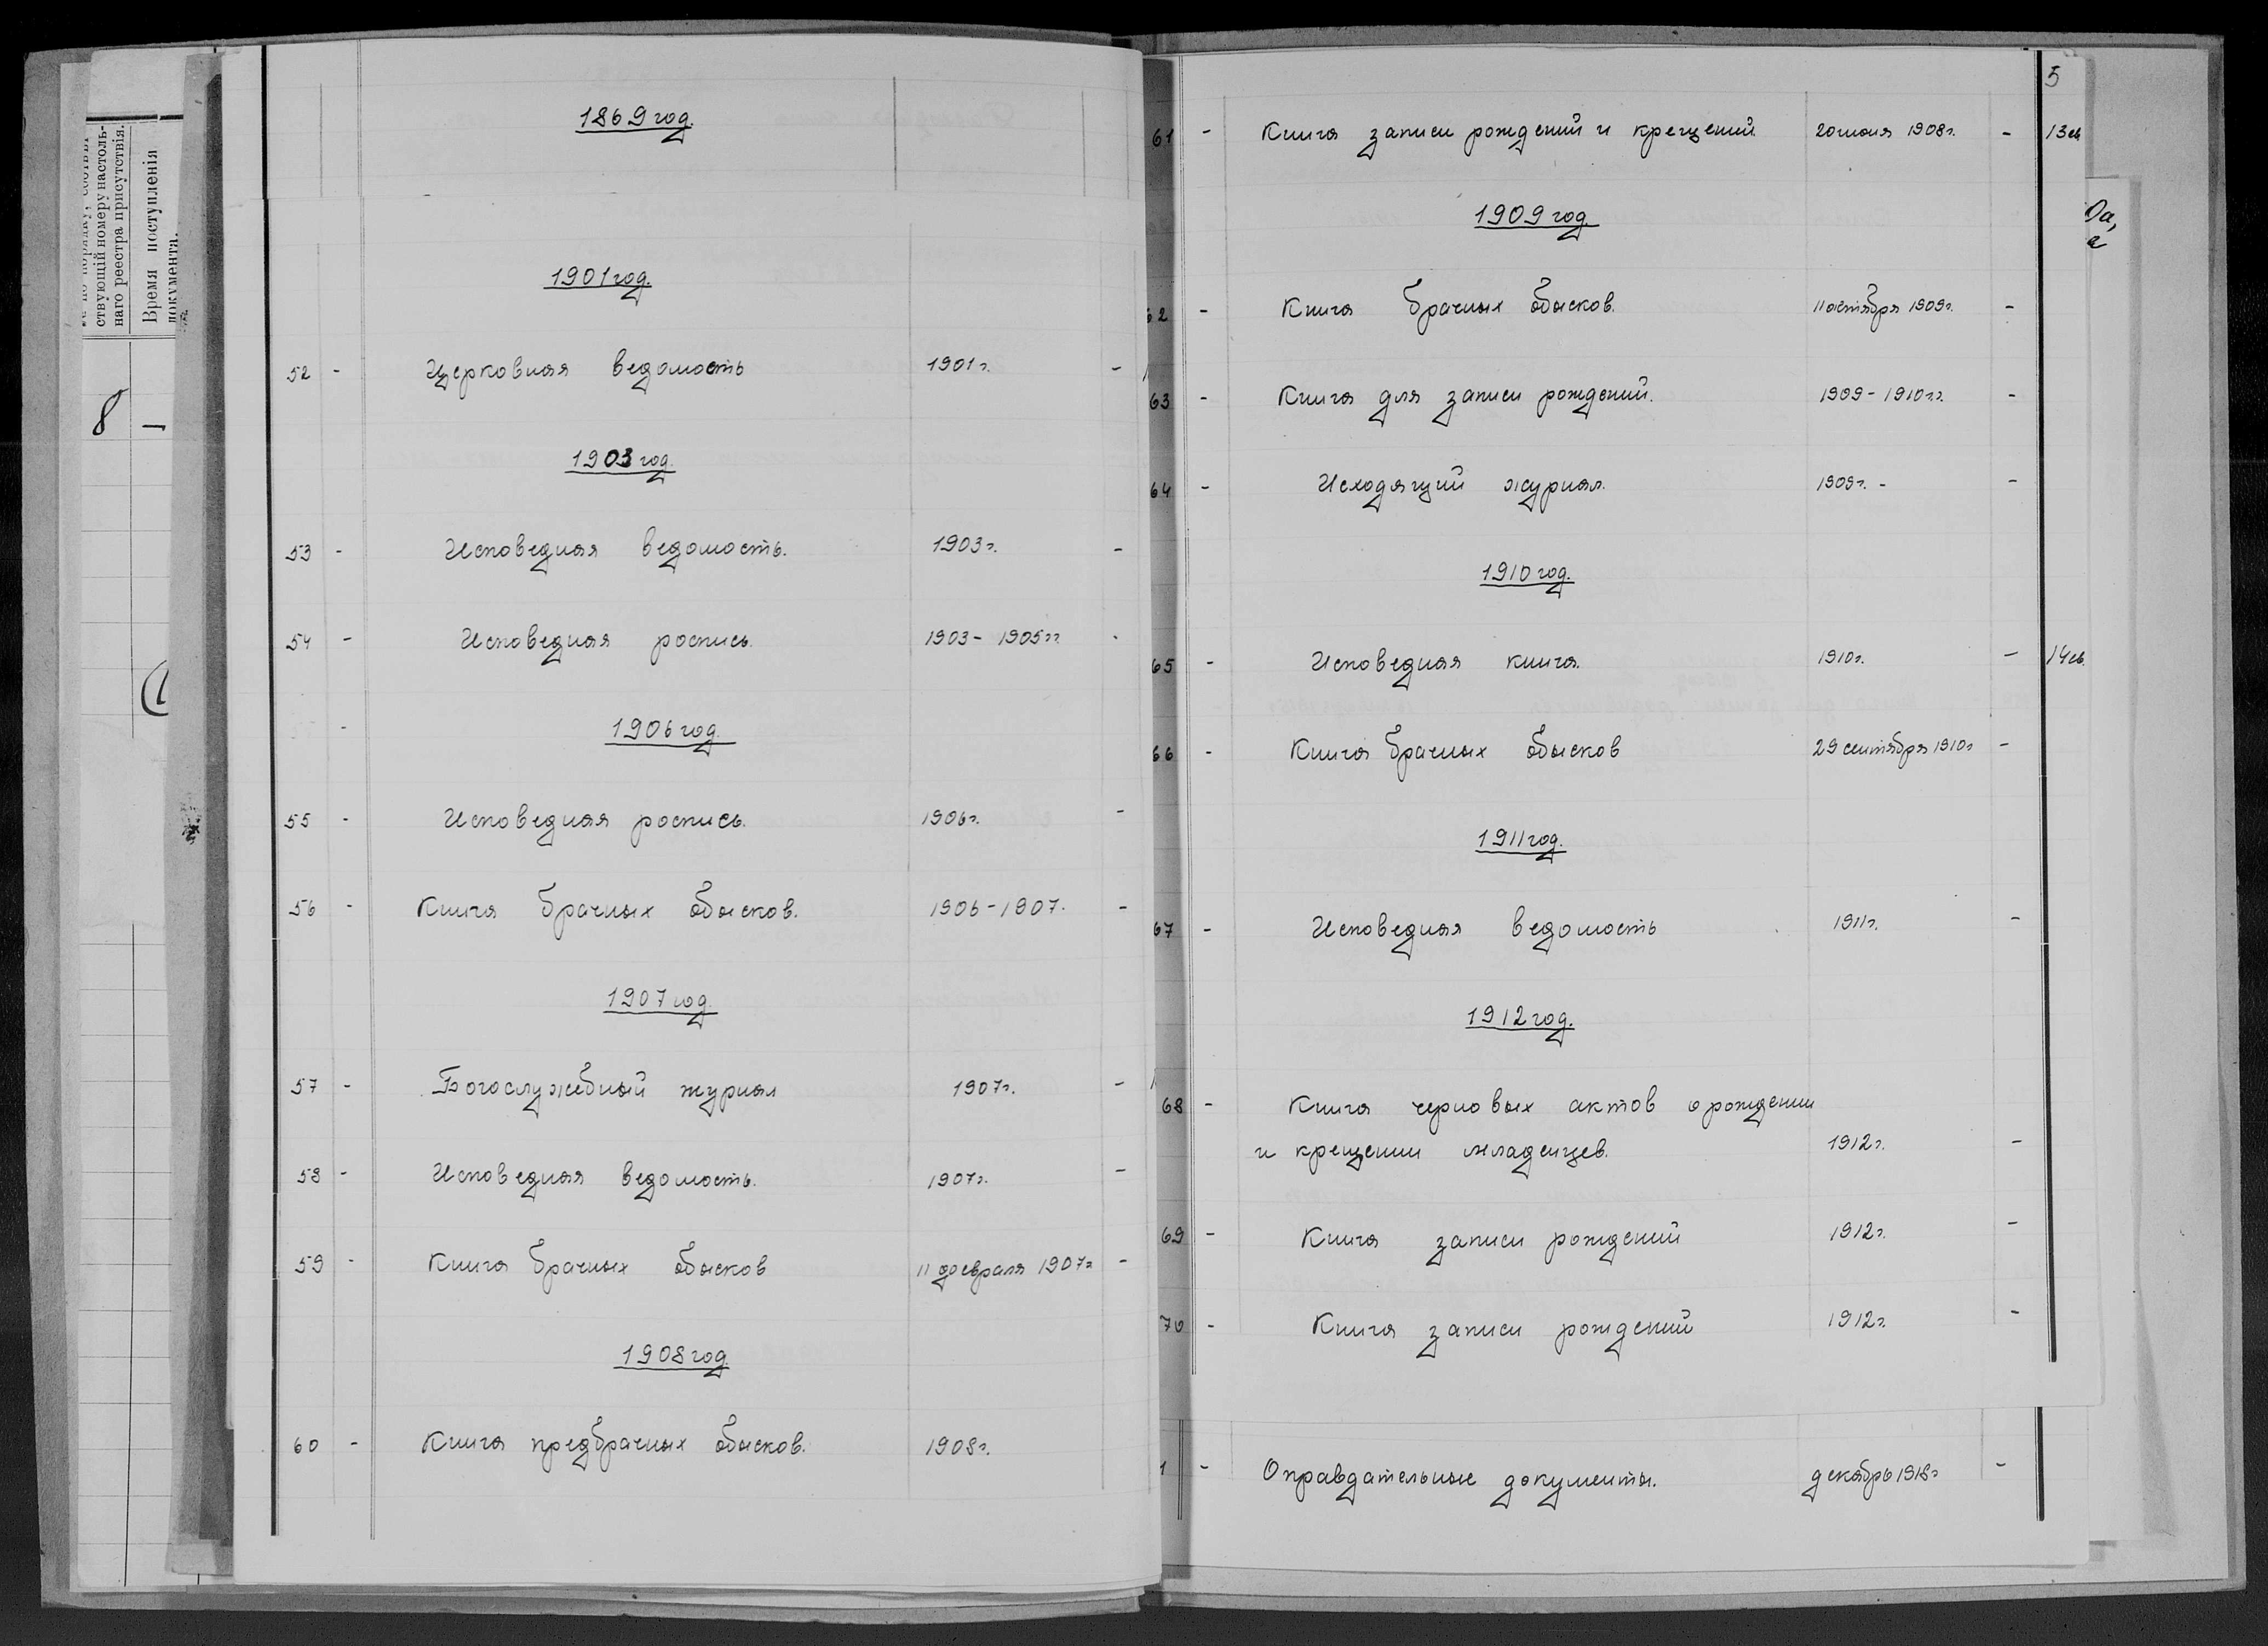 ствующій номеру настоль-
наго реестра присутствія.
Время поступленія
документа.
8 -
1869 год.
1901 год.
52 - Церковная ведомость 1901 г. -
1903 год.
53 - Исповедная ведомость. 1903 г. -
54 - Исповедная роспись. 1903 - 1905 гг. -
1906 год.
55 - Исповедная роспись. 1906 г. -
56 - Книга брачных обысков. 1906 - 1907. -
1907 год.
57 - Богослужебный журнал 1907 г. -
58 - Исповедная ведомость. 1907 г. -
59 - Книга брачных обысков 11 февраля 1907 г -
1908 год
60 - Книга предбрачных обысков. 1908 г.
5
61 - Книга записи рождений и крещений 20 июня 1908 г. - 13 св
1909 год.
62 - Книга брачных обысков. 11 октября 1909 г. -
63 - Книга для записи рождений. 1909 - 1910 гг. -
64 - Исходящий журнал. 1909 г. - -
1910 год.
65 - Исповедная книга. 1910 г. - 14 св.
66 - Книга брачных обысков 29 сентября 1910 г -
1911 год.
67 - Исповедная ведомость 1911 г. -
1912 год.
68 - Книга черновых актов о рождении
и крещении младенцев. 1912 г. -
69 - Книга записи рождений 1912 г. -
70 - Книга записи рождений 1912 г. -
1 - Оправдательные документы. декабрь 1918 г -